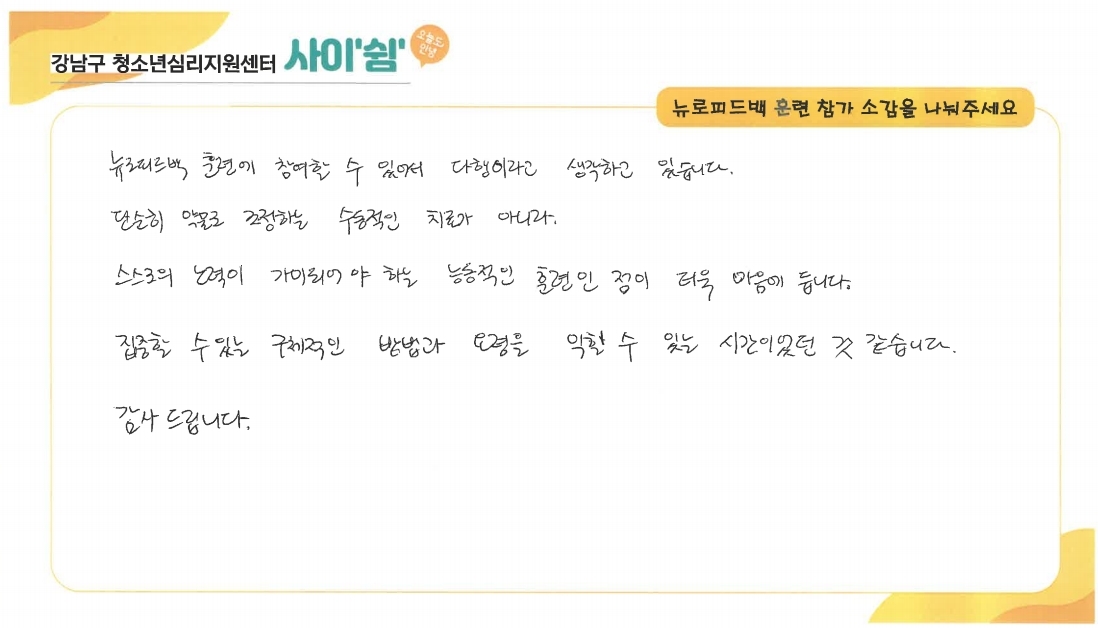 강남구 청소년심리지원센터 사이'쉼' 오늘도 안녕
뉴로피드백 훈련 참가 소감을 나눠주세요
뉴로피드백 훈련에 참여할 수 있어서 다행이라고 생각하고 있습니다.
단순히 약물로 조정하는 수동적인 치료가 아니라.
스스로의 노력이 가미되어야 하는 능동적인 훈련인 점이 더욱 마음에 듭니다.
집중할 수 있는 구체적인 방법과 요령을 익힐 수 있는 시간이었던 것 같습니다.
감사 드립니다.